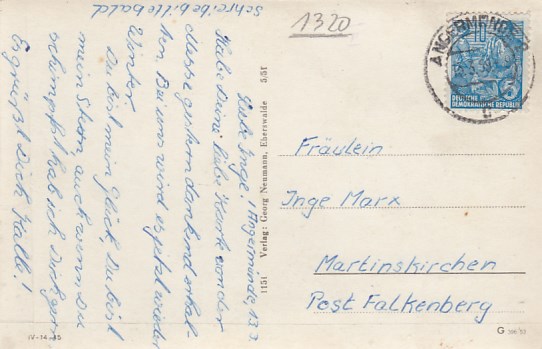 Liebe Inge! Angermünde, 13.3.
Habe Deine liebe Karte von der
Messe gestern dankend erhal-
ten. Bei uns wird es jetzt wieder
Winter.
Du bist mein Glück, Du bist
mein Stern, auch wenn Du
schimpfst hab ich Dich gern
Es grüßt Dich Kalle!
Schreibe bitte bald
1320
ANGERMÜNDE
DEUTSCHE
DEMOKRATISCHE REPUBLIK
5
Fräulein
Inge Marx
Martinskirchen
Post Falkenberg
1151 Verlag: Georg Neumann, Eberswalde 5,5t
IV-14-45
G